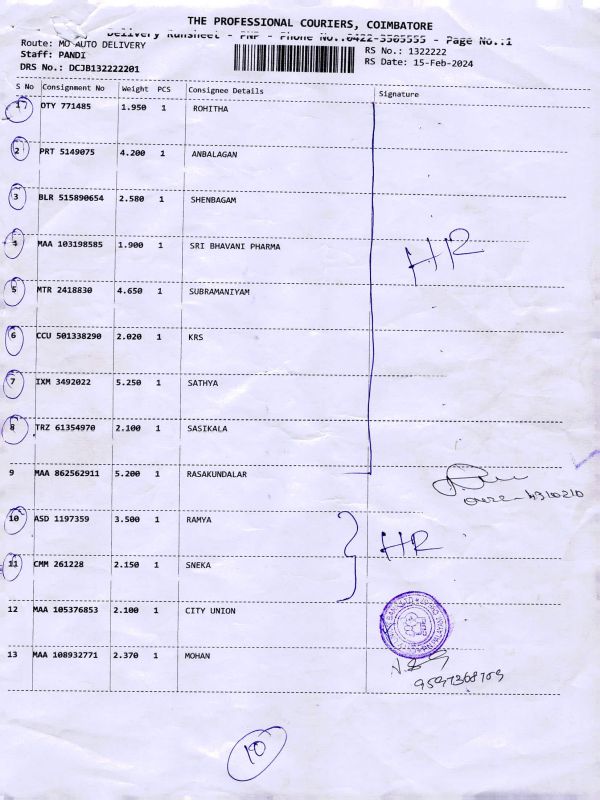 THE PROFESSIONAL COURIERS, COIMBATORE
Delivery Runsheet - PNP - Phone No.:0422-3505555 - Page No.:1
Route: MO AUTO DELIVERY
RS No.: 1322222
Staff: PANDI
RS Date: 15-Feb-2024
DRS No.: DCJB132222201
S No Consignment No Weight PCS Consignee Details Signature
1 OTY 771485 1.950 1 ROHITHA
2 PRT 5149075 4.200 1 ANBALAGAN
3 BLR 515890654 2.580 1 SHENBAGAM
4 MAA 103198585 1.900 1 SRI BHAVANI PHARMA
HR
5 MTR 2418830 4.650 1 SUBRAMANIYAM
6 CCU 501338290 2.020 1 KRS
7 IXM 3492022 5.250 1 SATHYA
8 TRZ 61354970 2.100 1 SASIKALA
9 MAA 862562911 5.200 1 RASAKUNDALAR
10 ASD 1197359 3.500 1 RAMYA
HR
11 CMM 261228 2.150 1 SNEKA
12 MAA 105376853 2.100 1 CITY UNION
13 MAA 108932771 2.370 1 MOHAN
10